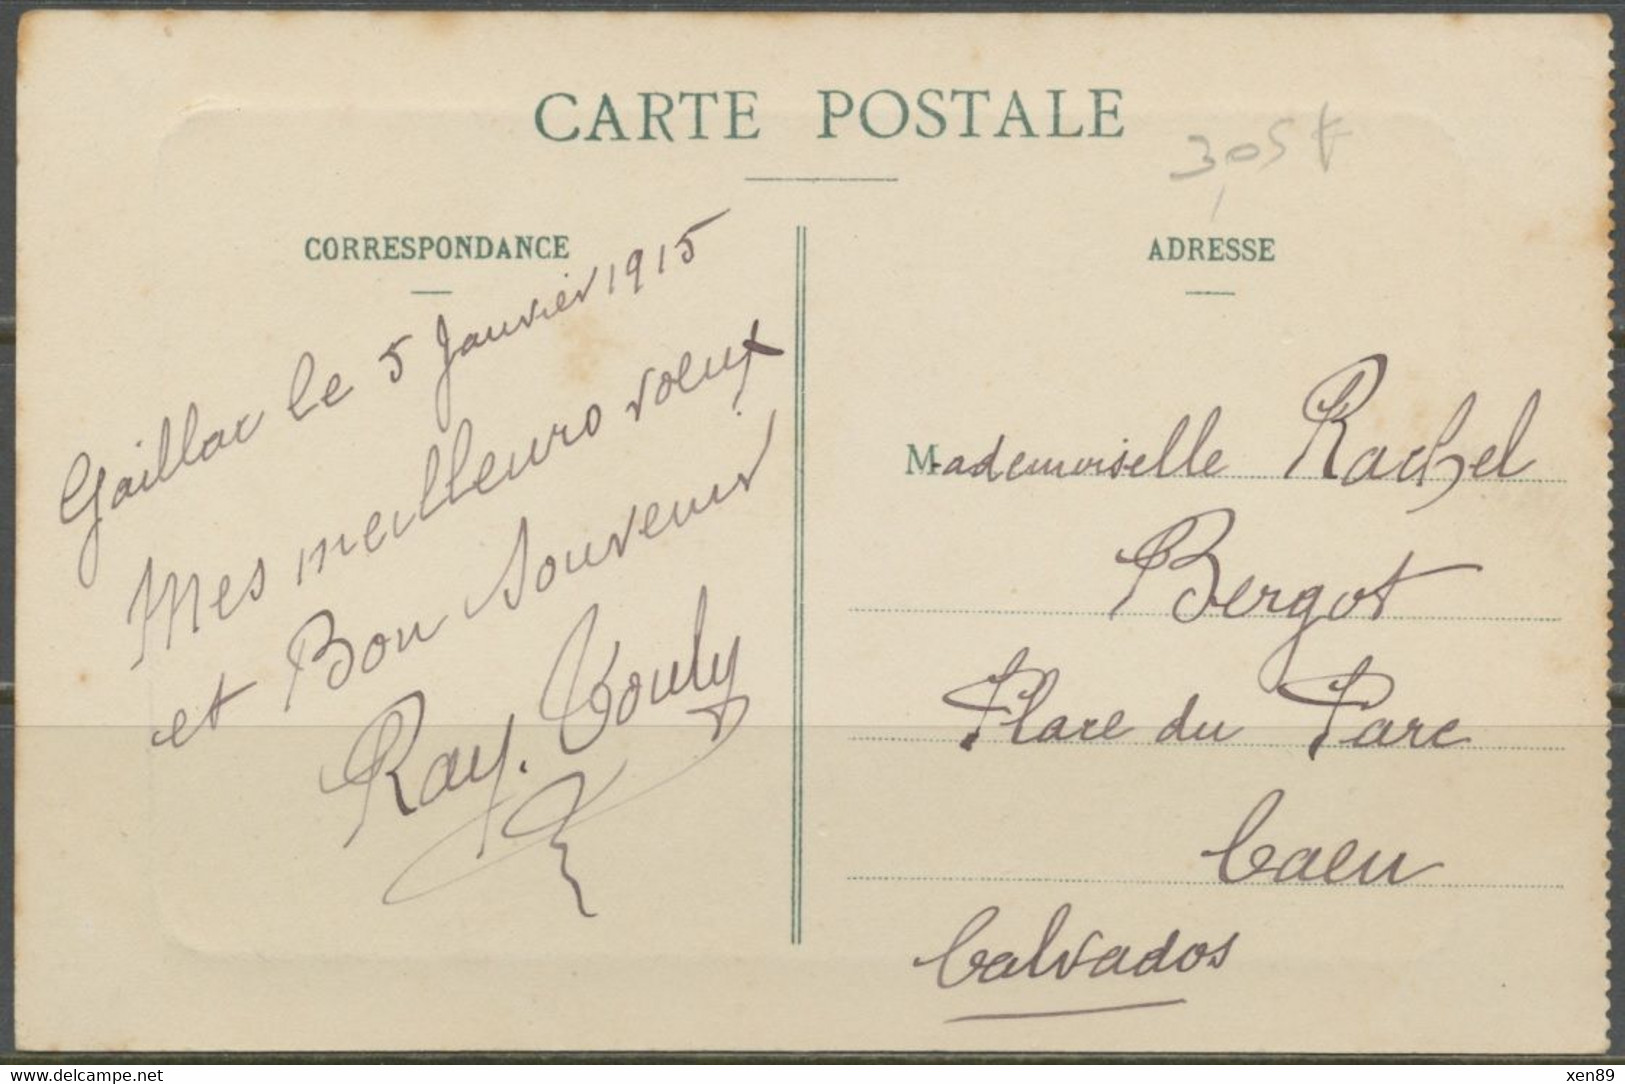 CARTE POSTALE
305 F
CORRESPONDANCE
Gaillac le 5 Janvier 1915
Mes meilleurs voeux
et Bon Souvenir
Ray.
ADRESSE
Mademoiselle Rachel
Bergot
Place du Parc
Caen
Calvados
www.delcampe.net
xen89